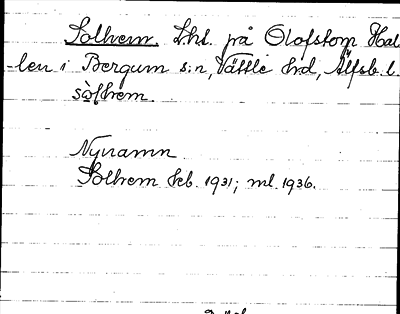 Solhem. Lht. på Olofstorp Hal
-len i Bergum s:n, Vättle hrd, Älfsb. l.
sòłhem.
Nynamn
Solhem kb. 1931; ml. 1936.